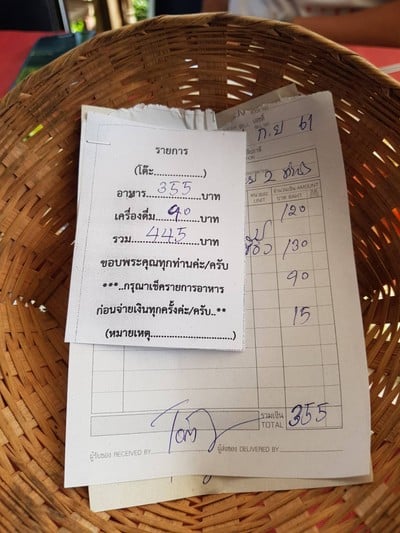 รายการ
(โต๊ะ..............)
อาหาร...355...บาท
เครื่องดื่ม...90...บาท
รวม...445...บาท
ขอบพระคุณทุกท่านค่ะ/ครับ
***..กรุณาเช็ครายการอาหาร
ก่อนจ่ายเงินทุกครั้งค่ะ/ครับ..**
(หมายเหตุ.......................)
ก.ย 61
2
หน่วยละ
UNIT
จำนวนเงิน AMOUNT
บาท BAHT
120
130
90
15
รวมเงิน
TOTAL 355
ผู้รับของ RECEIVED BY
ผู้ส่งของ DELIVERED BY